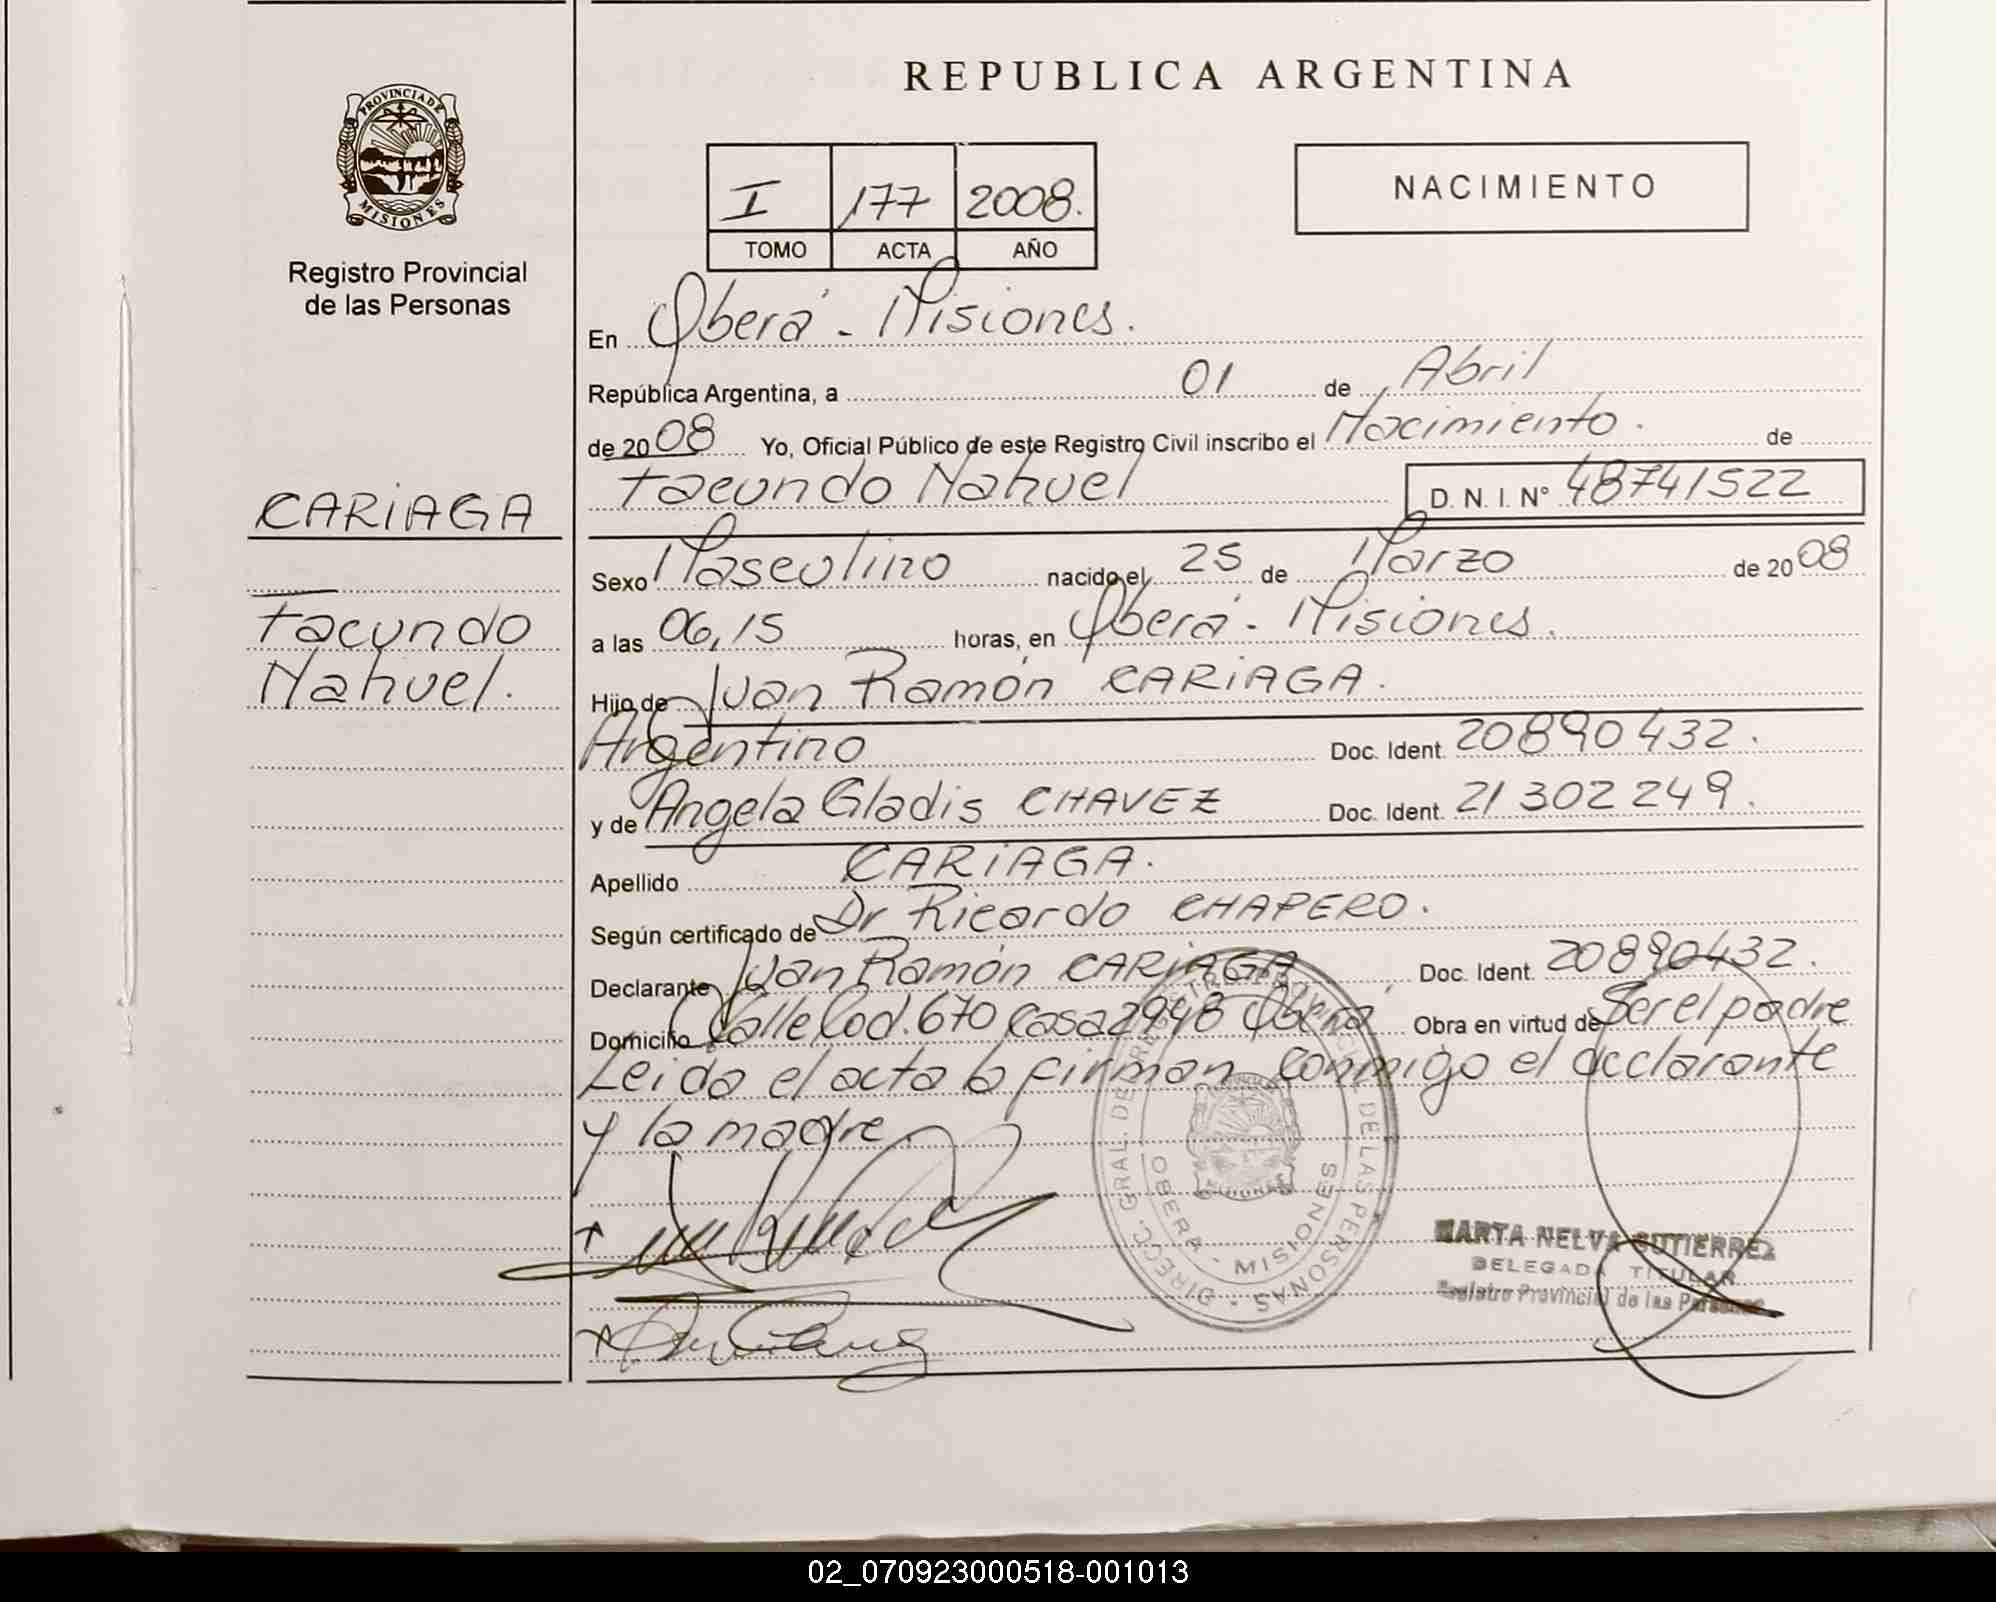 REPUBLICA ARGENTINA
PROVINCIA DE MISIONES
Registro Provincial
de las Personas
I 177 2008.
TOMO ACTA AÑO
NACIMIENTO
En Oberá - Misiones.
República Argentina, a 01 de Abril
de 2008 Yo, Oficial Público de este Registro Civil inscribo el Nacimiento. de
Facundo Nahuel D. N. I. N° 48741522
CARIAGA
Facundo
Nahuel.
Sexo Masculino nacido el 25 de Marzo de 2008
a las 06,15 horas, en Oberá - Misiones.
Hijo de Juan Ramón CARIAGA.
Argentino Doc. Ident. 20890432.
y de Angela Gladis CHAVEZ Doc. Ident. 21302249.
Apellido CARIAGA.
Según certificado de Dr Ricardo CHAPERO.
Declarante Juan Ramón CARIAGA Doc. Ident. 20890432.
Domicilio Calle Cod. 670 Casa 2948 Oberá Obra en virtud de Ser el padre
Leida el acta la firman conmigo el declarante
y la madre.
DIRECC. GRAL. DE REGISTRO PROVINCIAL DE LAS PERSONAS
OBERA - MISIONES
MARTA NELVA GUTIERREZ
DELEGADA TITULAR
Registro Provincial de las Personas
02_070923000518-001013